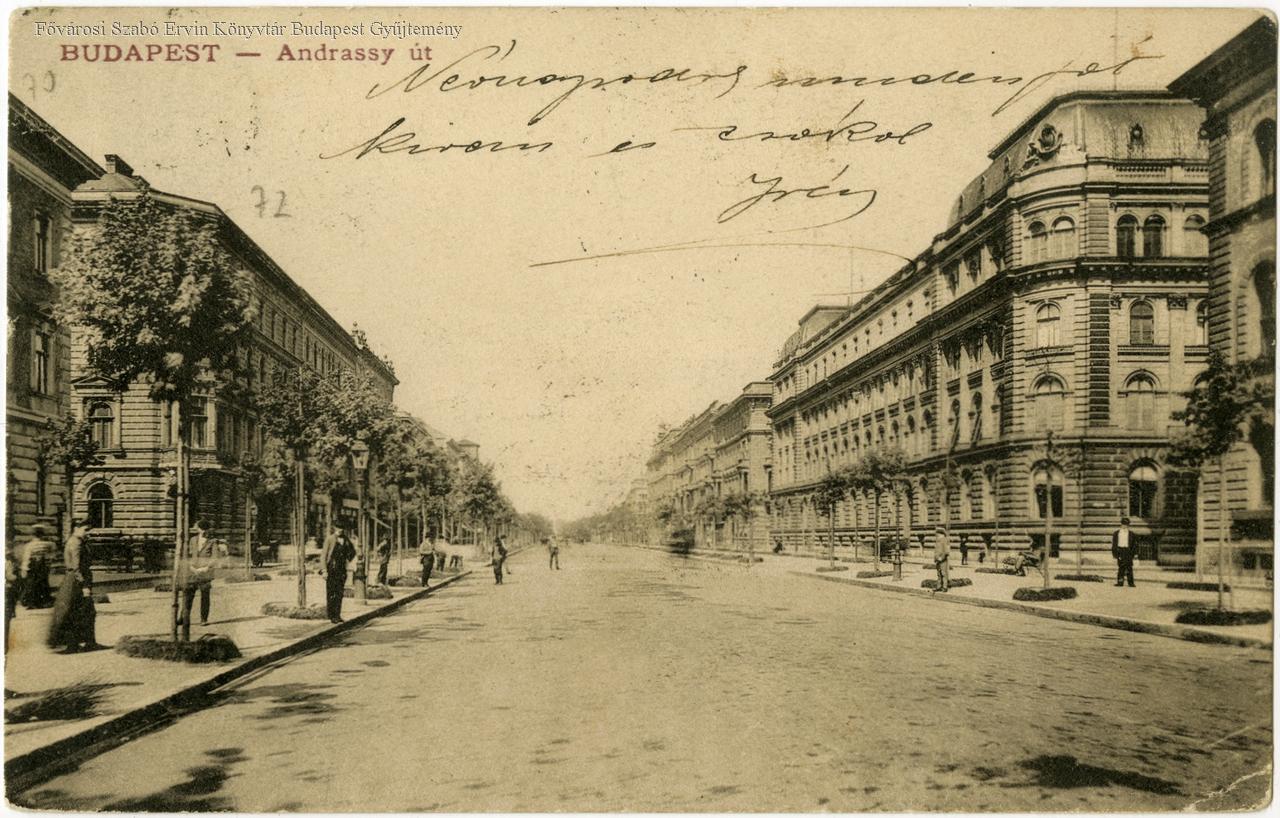 Fővárosi Szabó Ervin Könyvtár Budapest Gyűjtemény
BUDAPEST — Andrassy út
70
Névnapodra minden jót
kiván és csókol
Irén
72